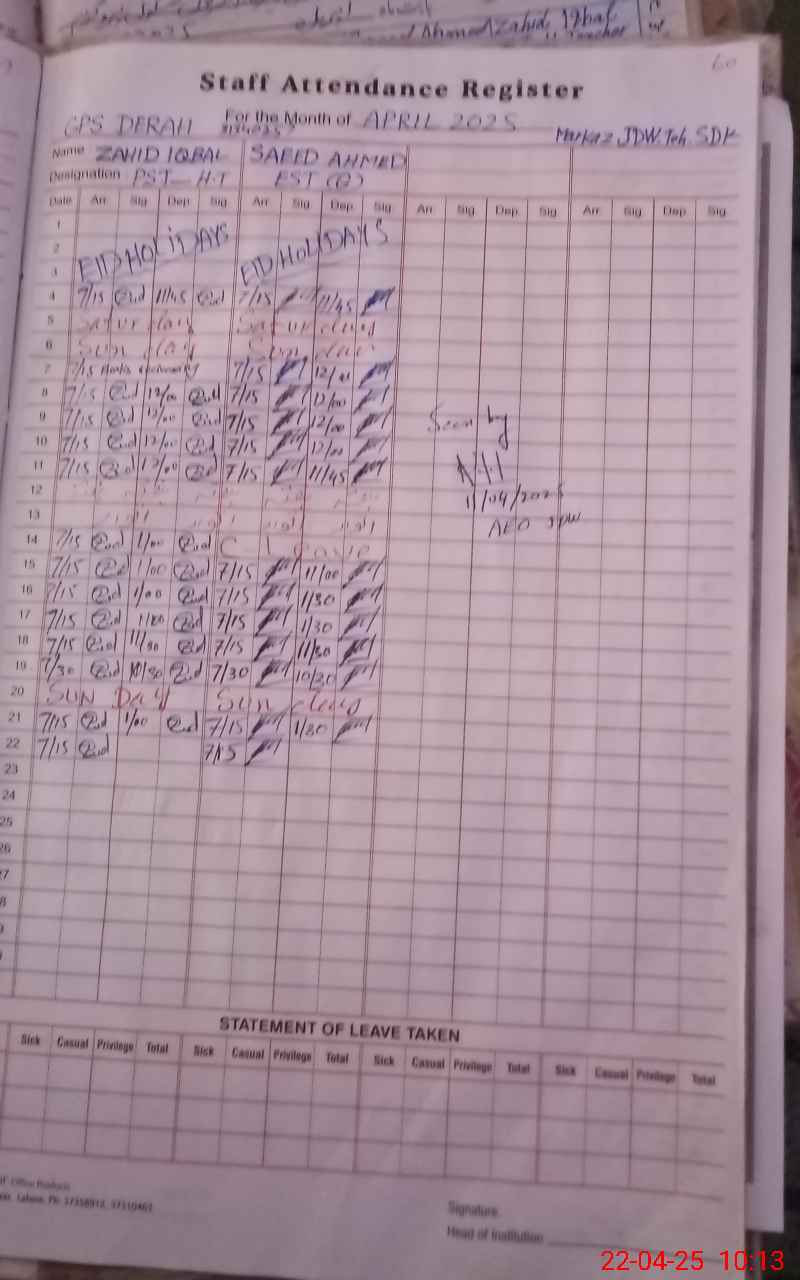 Ahmed Zahid Iqbal
Teacher
60
Staff Attendance Register
GPS DERAH For the Month of APRIL 2025 Markaz JDW. Teh. SDK
Name ZAHID IQBAL SAEED AHMED
Designation PST - H.T EST (G)
Date Arr. Sig. Dep. Sig. Arr. Sig. Dep. Sig. Arr. Sig. Dep. Sig. Arr. Sig. Dep. Sig.
1
2 EID HOLIDAYS EID HOLIDAYS
3
4 7/15 11/45 7/15 11/45
5 Saturday Saturday
6 Sunday Sunday
7 7/15 7/15 12/00
8 7/15 12/00 7/15 12/00
9 7/15 12/00 7/15 12/00 Seen by
10 7/15 12/00 7/15 12/00
11 7/15 12/00 7/15 11/45
12 11/04/2025
13 AEO JDW
14 7/15 1/00 C Leave
15 7/15 1/00 7/15 11/00
16 7/15 1/00 7/15 1/30
17 7/15 1/00 7/15 1/30
18 7/15 11/30 7/15 11/30
19 7/30 10/30 7/30 10/30
20 SUN DAY Sunday
21 7/15 1/00 7/15 1/30
22 7/15 7/15
23
24
25
26
27
STATEMENT OF LEAVE TAKEN
Sick Casual Privilege Total Sick Casual Privilege Total Sick Casual Privilege Total Sick Casual Privilege Total
Office Products
Lahore. Ph: 37358912, 37310461
Signature
Head of Institution
22-04-25 10:13